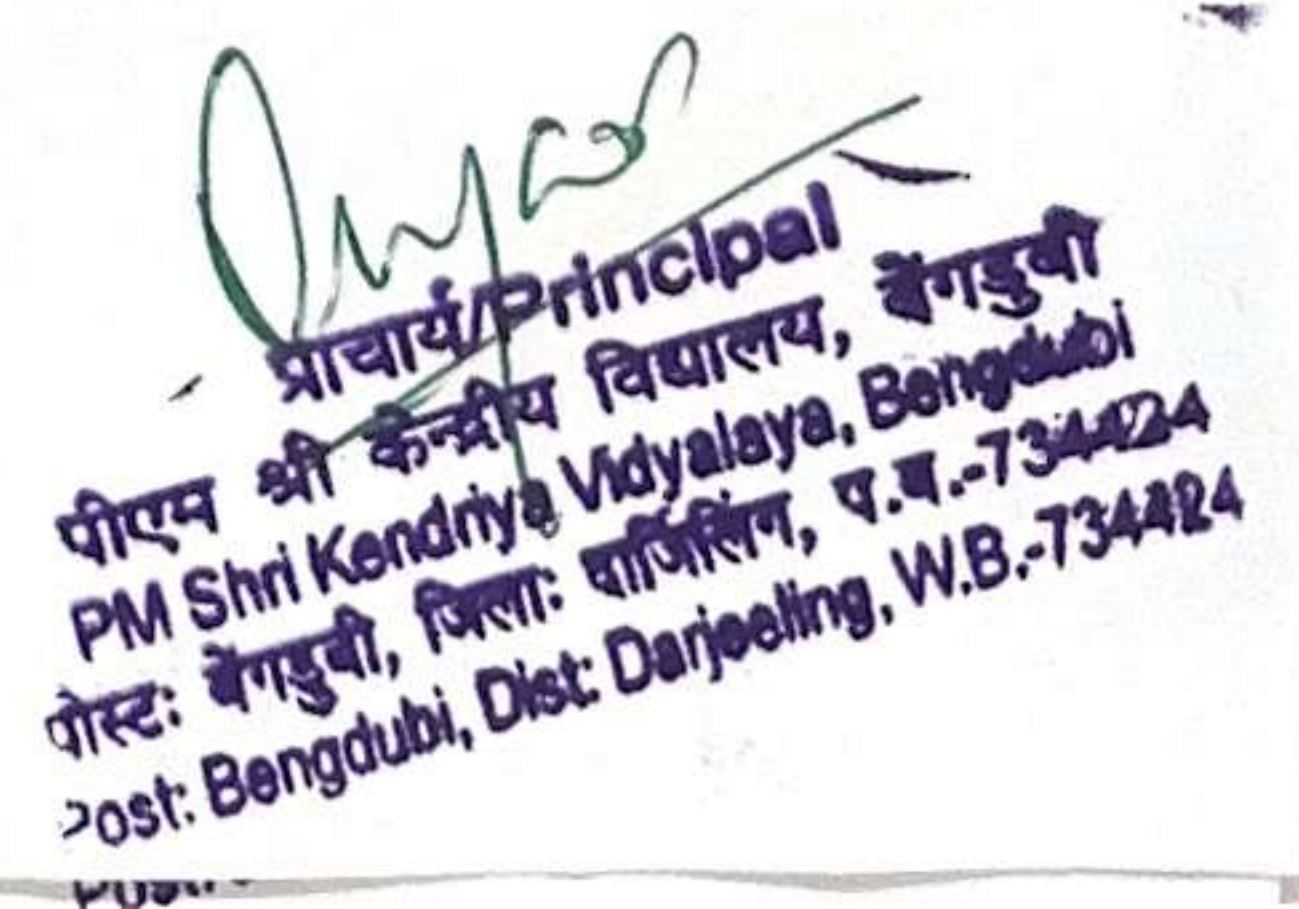 प्राचार्य/Principal
पीएम श्री केन्द्रीय विद्यालय, बेंगडुबी
PM Shri Kendriya Vidyalaya, Bengdubi
पोस्ट: बेंगडुबी, जिला: दार्जिलिंग, प.ब.-734424
Post: Bengdubi, Dist: Darjeeling, W.B.-734424